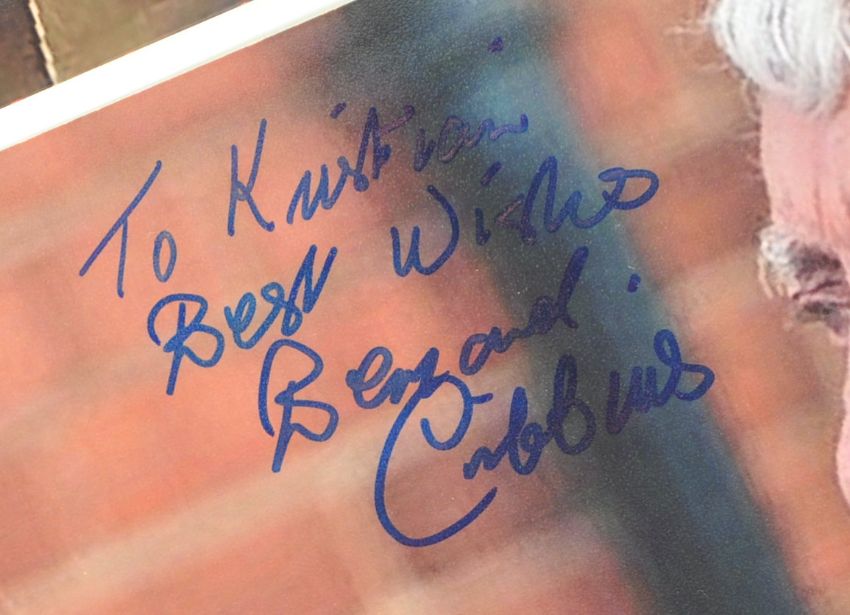 To Kristian
Best Wishes
Bernard
Cribbins